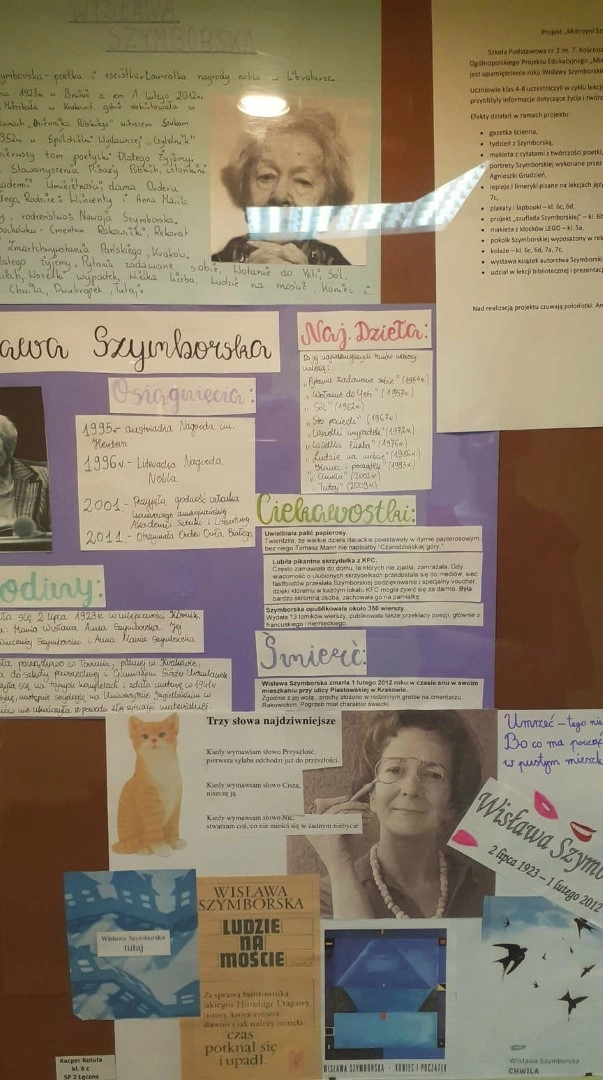 WISŁAWA
SZYMBORSKA
Szymborska- poetka i eseistka. Laureatka nagrody nobla w literaturze.
1923r. w Bninie a zm. 1 lutego 2012r.
w Krakowie, gdzie debiutowała w
"Dziennika Polskiego" wierszem Szukam
1952r. w Spółdzielni Wydawniczej "Czytelnik"
pierwszy tom poetycki Dlatego Żyjemy.
Stowarzyszenia Pisarzy Polskich, członkini
Akademii Umiejętności, dama Orderu
Białego. Rodzice Wincenty i Anna Maria
rodzeństwo Nawoja Szymborska.
pochówku- Cmentarz Rakowicki,
Zmartchwywstania Pańskiego, Kraków.
Dlatego żyjemy, Pytania zadawane sobie, Wołanie do Yeti, Sól,
Wszelki wypadek, Wielka liczba, Ludzie na moście, Koniec i
Chwila, Dwukropek, Tutaj.
Projekt „Mistrzyni
Szkoła Podstawowa nr 2 im. T. Kościuszki
Ogólnopolskiego Projektu Edukacyjnego
jest upamiętnienie roku Wisławy Szymborskiej
Uczniowie klas 4-8 uczestniczyli w cyklu lekcji
przybliżyły informacje dotyczące życia i
Efekty działań w ramach projektu:
• gazetka ścienna,
• tydzień z Szymborską,
• makieta z cytatami z twórczości poetki,
• portrety Szymborskiej wykonane przez
Agnieszki Grudzień,
• lepieje i limeryki pisane na lekcjach
7c,
• plakaty i lapbooki – kl. 6c, 6d,
• projekt „szuflada Szymborskiej" – kl. 6b
• makieta z klocków LEGO – kl. 5a,
• pokoik Szymborskiej wyposażony w
• kolaże – kl. 6c, 6d, 7a, 7c,
• wystawa książek autorstwa Szymborskiej
• udział w lekcji bibliotecznej i
Nad realizacją projektu czuwają polonistki:
awa Szymborska
Osiągnięcia:
1995r- austriacka Nagroda im.
Herdera
1996r.- Literacka Nagroda
Nobla
2001- Przyjęła godność członka
honorowego amerykańskiej
Akademii Sztuki i Literatury
2011- Otrzymała Order Orła Białego
Naj. Dzieła:
Do jej najważniejszych tomów wierszy
należą:
„Pytania zadawane sobie" (1954r.)
„Wołanie do Yeti" (1957r.)
„Sól" (1962r.)
„Sto pociech" (1967r.)
„Wszelki wypadek" (1972r.)
„Wielka liczba" (1976r.)
„Ludzie na moście" (1986r.)
„Koniec i początek" (1993r.)
„Chwila" (2002r.)
„Tutaj" (2009r.)
Ciekawostki:
Uwielbiała palić papierosy.
Twierdziła, że wielkie dzieła literackie powstawały w dymie papierosowym,
bez niego Tomasz Mann nie napisałby "Czarodziejskiej góry."
Lubiła pikantne skrzydełka z KFC.
Często zamawiała do domu, te których nie zjadła, zamrażała. Gdy
wiadomość o ulubionych skrzydełkach przedostała się do mediów, sieć
fastfoodów przesłała Szymborskiej podziękowanie i specjalny voucher,
dzięki któremu w każdym lokalu KFC mogła żywić się za darmo. Była
bardzo skromną osobą, zachowała go na pamiątkę.
Szymborska opublikowała około 350 wierszy.
Wydała 13 tomików wierszy, publikowała także przekłady poezji, głównie z
francuskiego i niemieckiego.
Śmierć:
Wisława Szymborska zmarła 1 lutego 2012 roku w czasie snu w swoim
mieszkaniu przy ulicy Piastowskiej w Krakowie.
Zgodnie z jej wolą, prochy złożono w rodzinnym grobie na cmentarzu
Rakowickim. Pogrzeb miał charakter świecki.
odziny:
się 2 lipca 1923r. w miejscowości Kórnik.
Maria Wisława Anna Szymborska. Jej
Wincenty Szymborski i Anna Maria Szymborska.
początkowo w Toruniu, później w Krakowie,
do szkoły powszechnej i Gimnazjum Sióstr Urszulanek
na tajnych kompletach i zdała maturę w 1941r.
następnie socjologię na Uniwersytecie Jagiellońskim w
nie ukończyła z powodu złej sytuacji materialnej.
Trzy słowa najdziwniejsze
Kiedy wymawiam słowo Przyszłość,
pierwsza sylaba odchodzi już do przeszłości.
Kiedy wymawiam słowo Cisza,
niszczę ją.
Kiedy wymawiam słowo Nic,
stwarzam coś, co nie mieści się w żadnym niebycie.
Umrzeć – tego nie
Bo co ma począć
w pustym
Wisława Szymbo
2 lipca 1923 – 1 lutego 2012
Wisława Szymborska
tutaj
WISŁAWA
SZYMBORSKA
LUDZIE
NA
MOŚCIE
Za sprawą buntownika,
jakiegoś Hiroshige Utagawy
(istoty, która zresztą
dawno i jak należy minęła),
czas
potknął się
i upadł.
WISŁAWA SZYMBORSKA · KONIEC I POCZĄTEK
Wisława Szymborska
CHWILA
Kacper Kotuła
kl. 6 c
SP 2 Łęczna